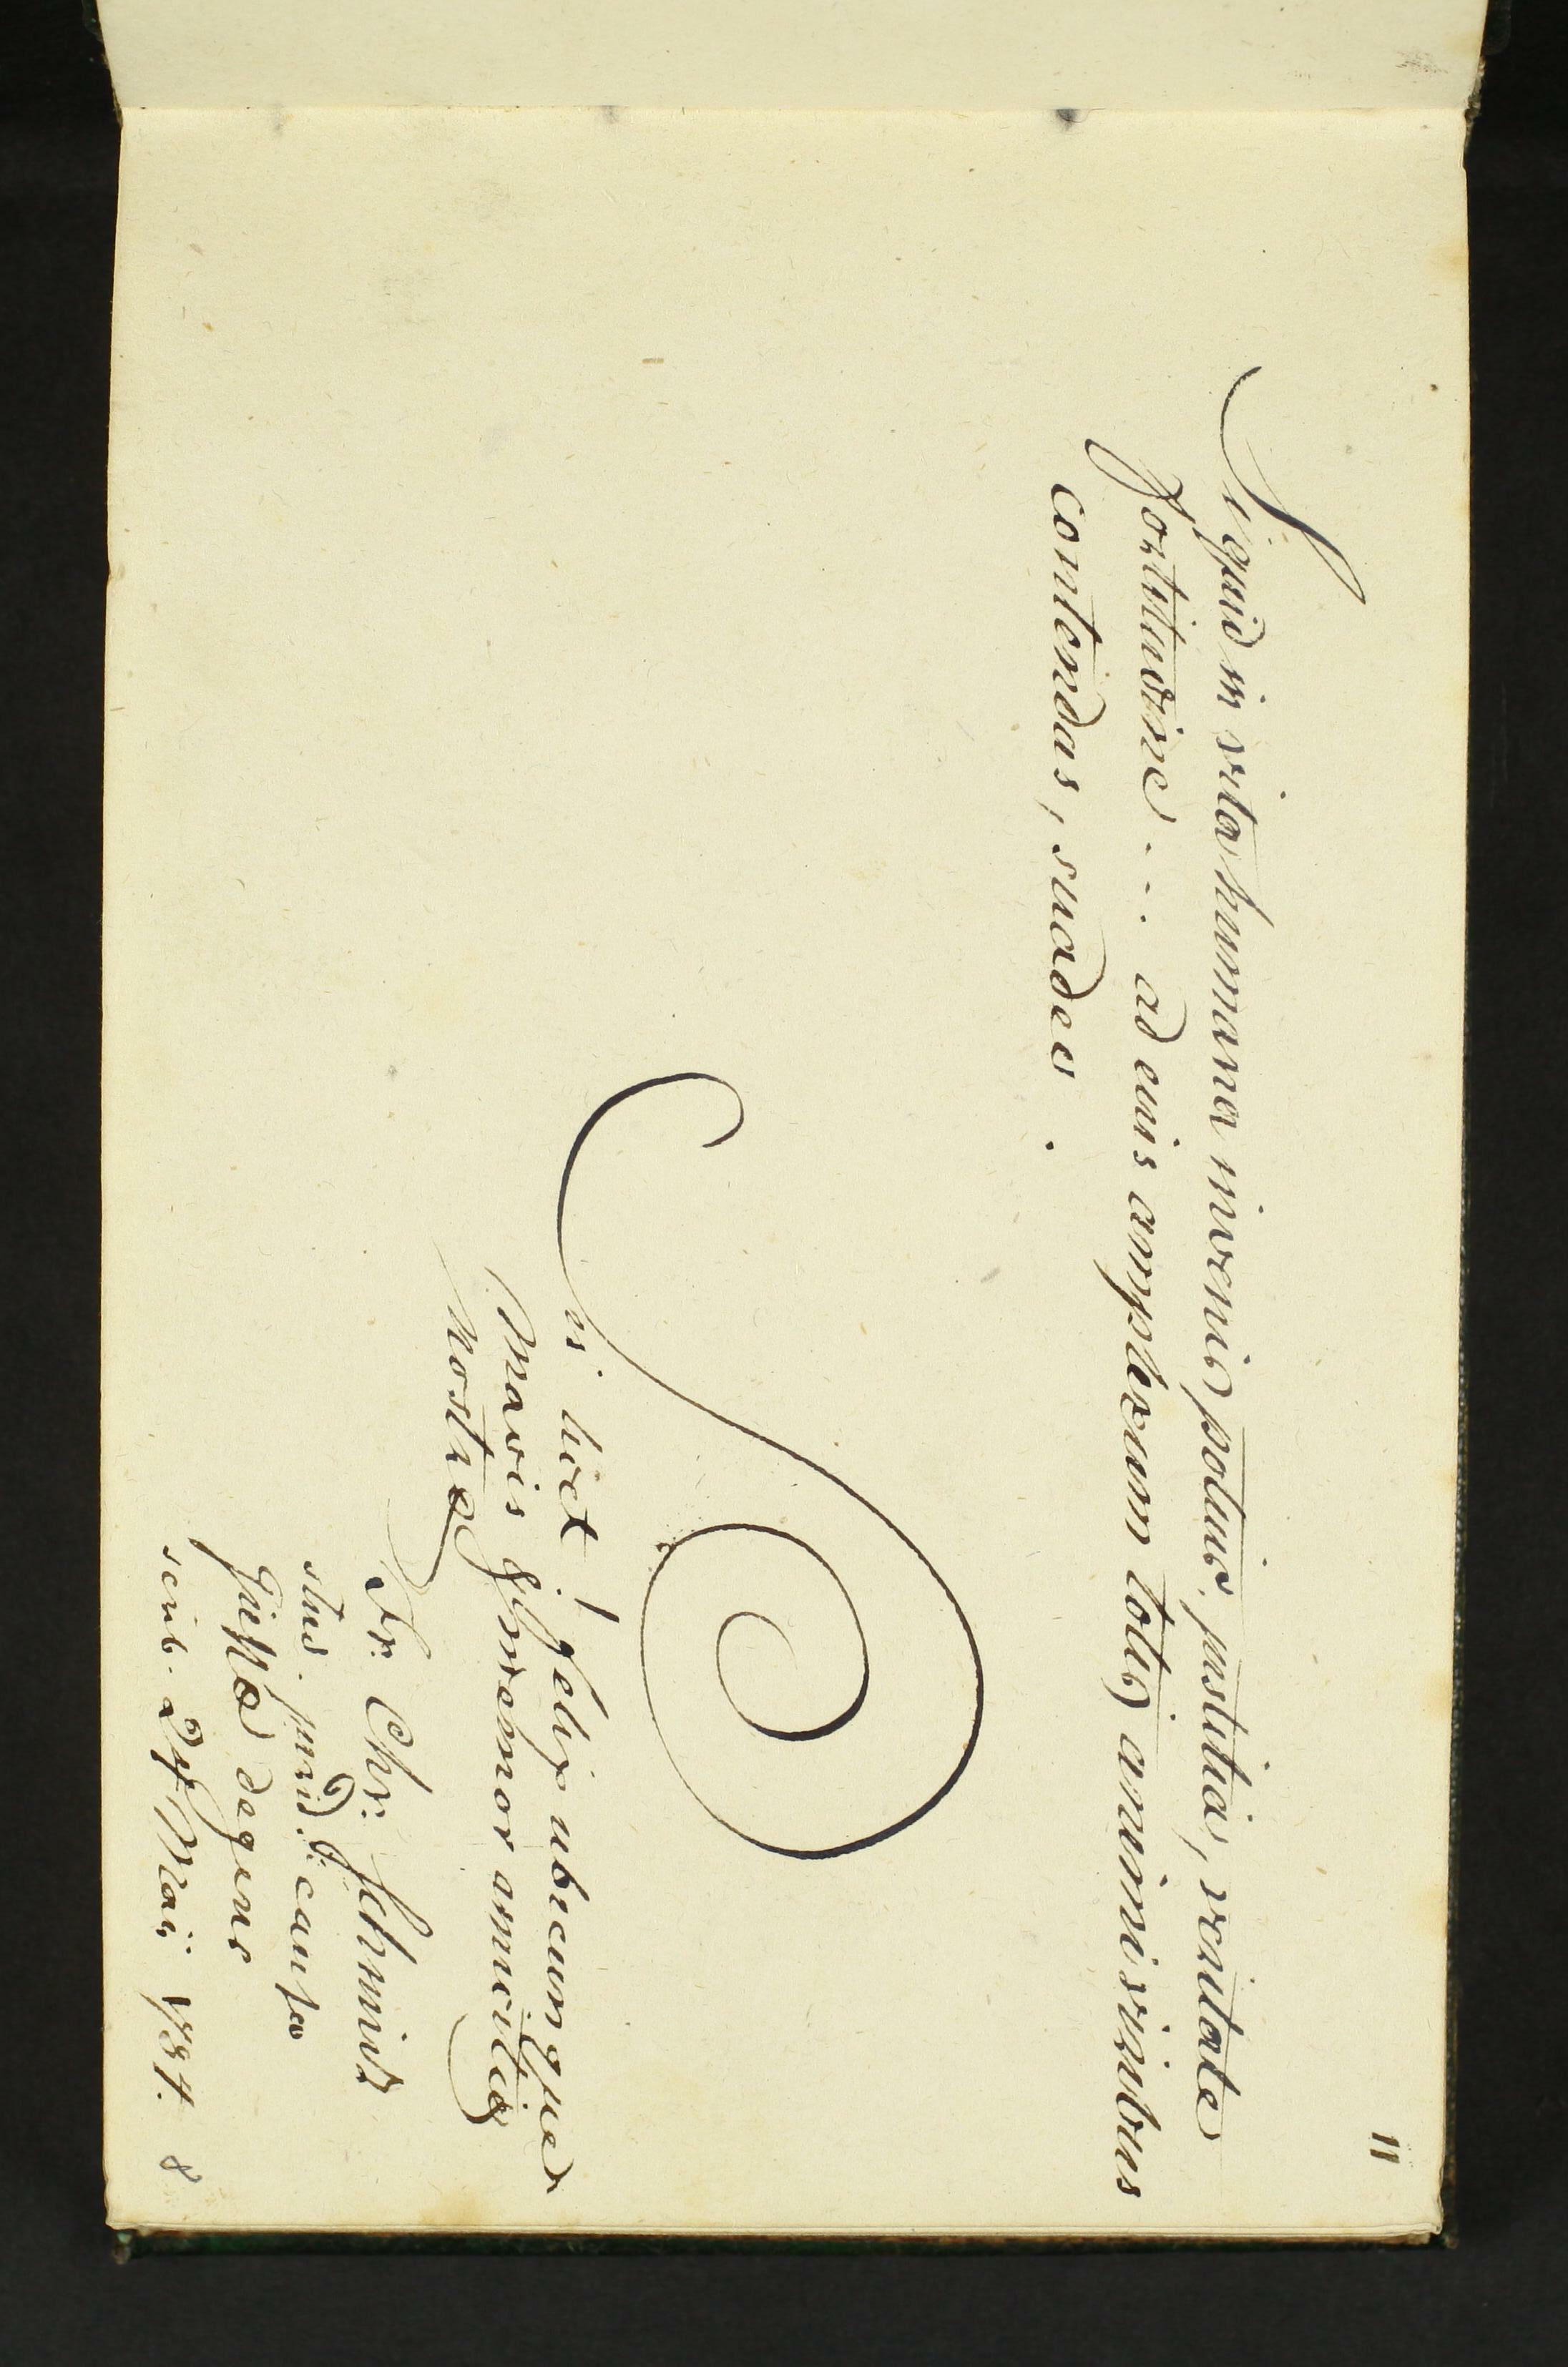 11
Siquid in vita humana invenis potius, justitia, veritate
fortitudine . . . ad eius amplexum totis animi viribus
contendas, suadeo.
Sis licet felix ubicunque
Mavis & memor amicitiæ
nostræ
Fr: Chr: Schmidt
stud. jurid: causa
degens
scrib. Maii
8